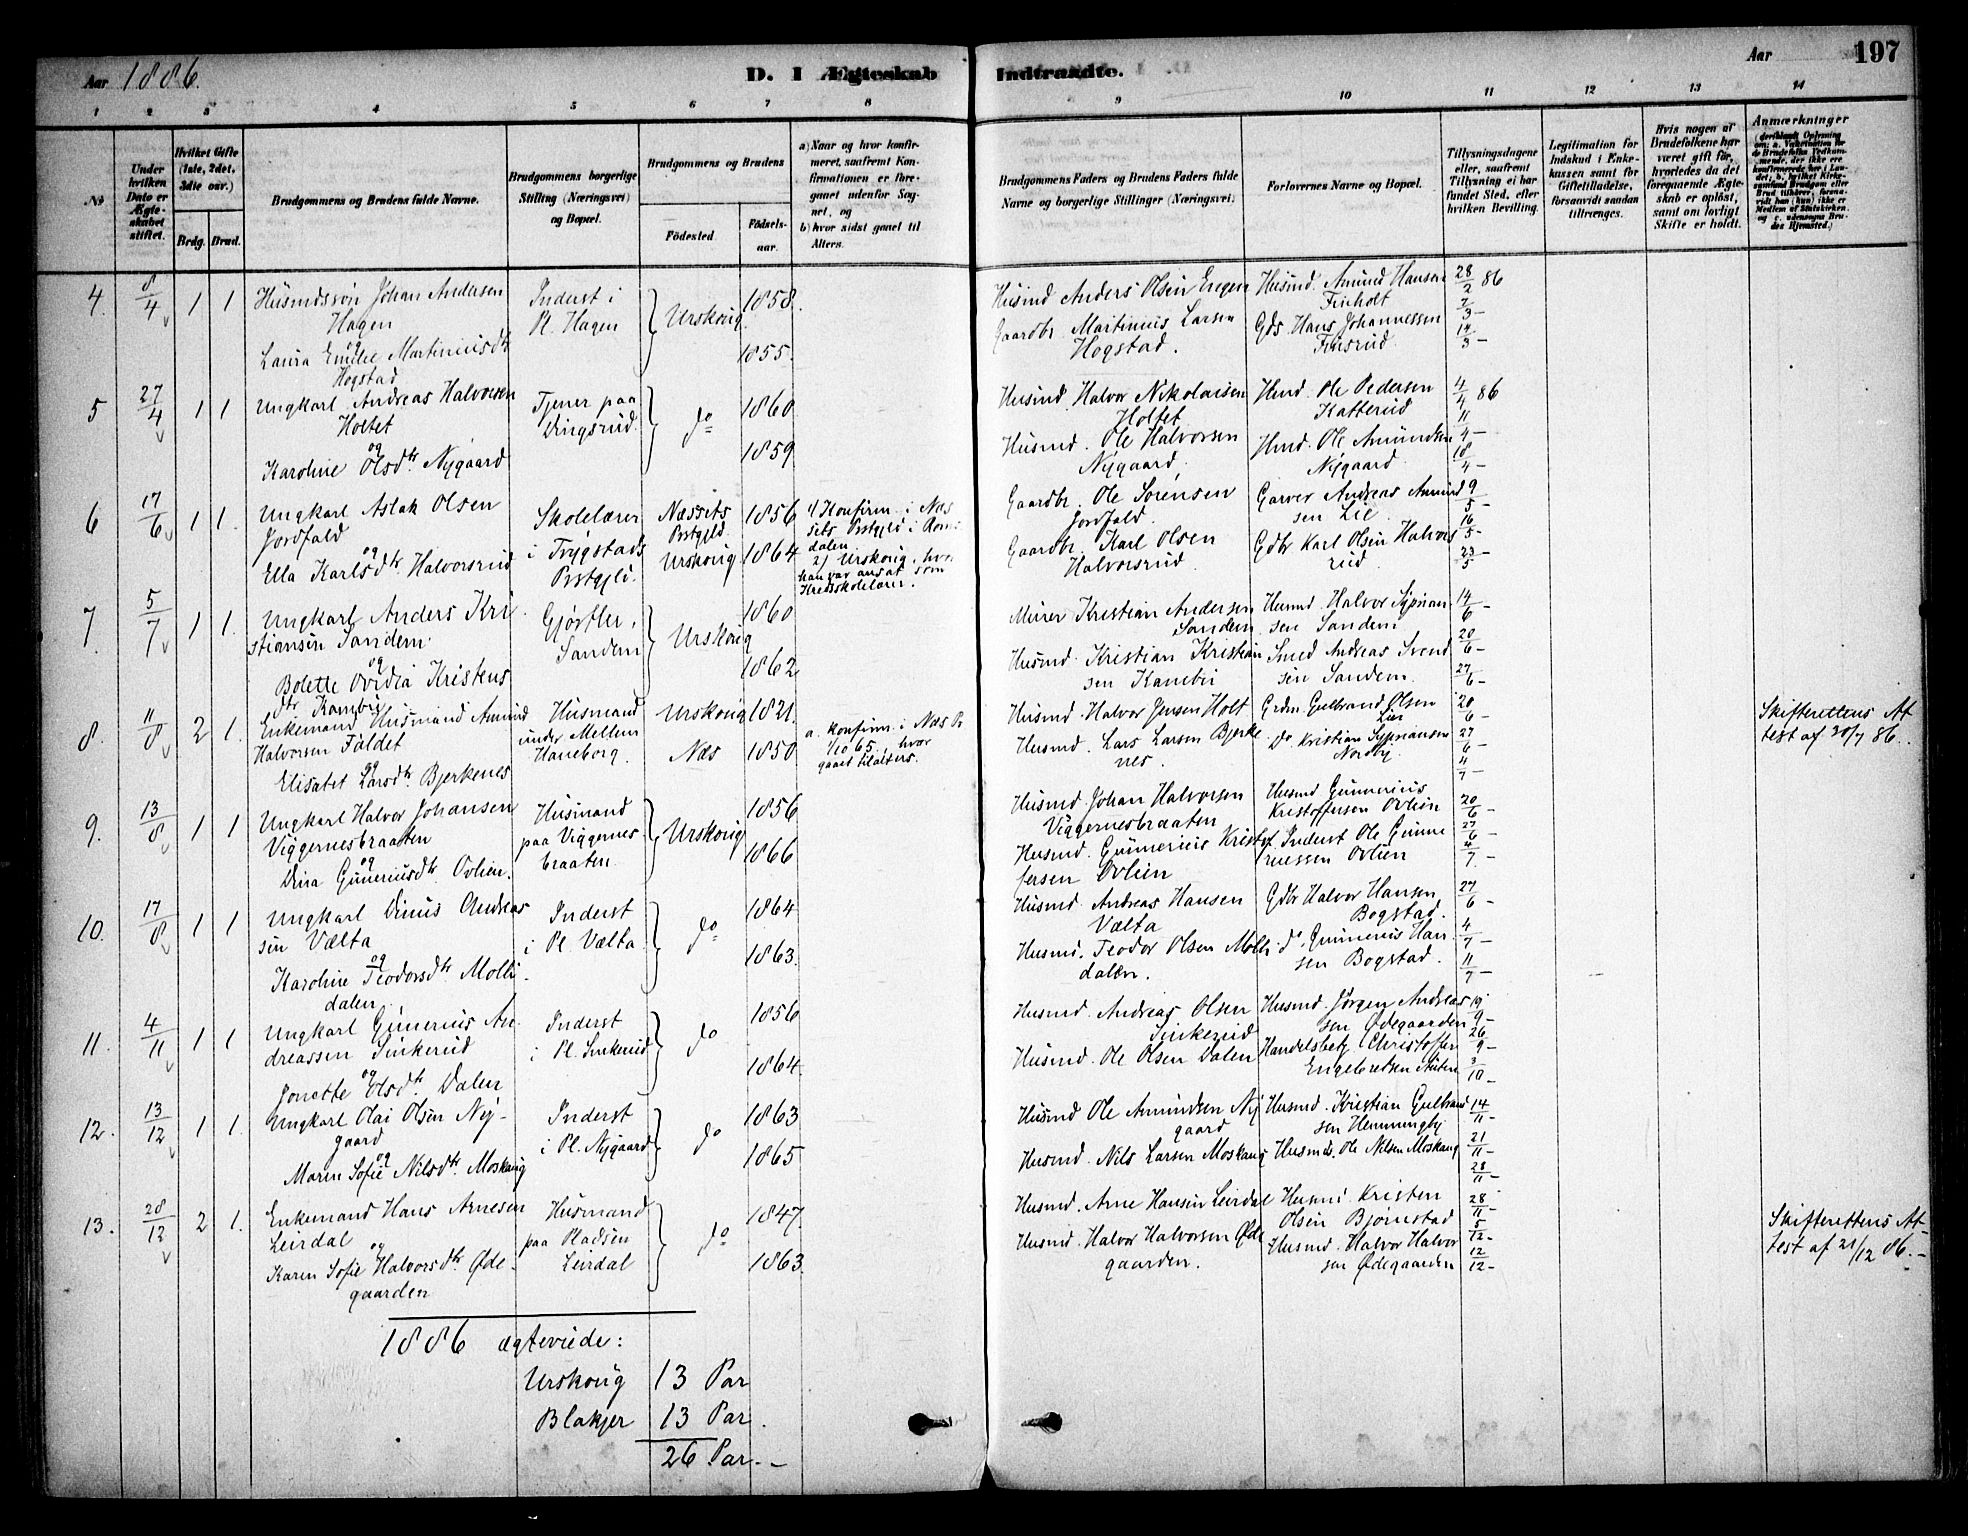 Aar 1886.
D. I Ægteskab Indtraadte.
Aar 197
1 2 3 4 5 6 7 8 9 10 11 12 13 14
No
Under hvilken Dato er Ægteskabet stiftet.
Hvilket Gifte (1ste, 2det, 3die osv.)
Brdg. Brud.
Brudgommens og Brudens fulde Navne.
Brudgommens borgerlige Stilling (Næringsvei) og Bopæl.
Brudgommens og Brudens
Födested.
Födselsaar.
a) Naar og hvor konfirmeret, saafremt Konfirmationen er foregaaet udenfor Sognet, og
b) hvor sidst gaaet til Alters.
Brudgommens Faders og Brudens Faders fulde Navne og borgerlige Stillinger (Næringsvei)
Forlovernes Navne og Bopæl.
Tillysningsdagene eller, saafremt Tillysning ei har fundet Sted, efter hvilken Bevilling.
Legitimation for Indskud i Enkekassen samt for Giftetilladelse, forsaavidt saadan tiltrænges.
Hvis nogen af Brudefolkene har været gift för, hvorledes da det foregaaende Ægteskab er oplöst, samt om lovligt Skifte er holdt.
Anmærkninger
4. 8/4 1 1 Husmdssøn Johan Andersen
Hagen
og
Laura Emilie Martiniusdtr
Hogstad
Inderst i
Pl. Hagen
Urskoug
1858.
1855.
Husmd Anders Olsen Engen
Gaardbr. Martinius Larsen
Hogstad.
Husmd. Amund Hansen
Finholt
Gds. Hans Johannessen
Finsrud.
28/2 86
7/3 -
14/3 -
5 27/4 1 1 Ungkarl Andreas Halvorsen
Holtet
og
Karoline Olsdtr Nygaard
Tjener paa
Dingsrud.
do
1860
1859
Husmd. Halvor Nikolaisen
Holtet
Husmd. Ole Halvorsen
Nygaard.
Hmd. Ole Pedersen
Katterud
Hmd. Ole Amundsen
Nygaard.
4/4 86
11/4 -
18/4 -
6 17/6 1 1. Ungkarl Aslak Olsen
Jordfald
og
Ella Karlsdtr Halvorsrud
Skolelærer
i Trygstads
Prstgjld.
Næssets
Prstgjld.
Urskoug
1856
1864
1/ Konfirm. i Næs
sets Prstgjld i Rom
dalen.
2/ Urskoug, hvor
han var ansat som
Kredsskolelærer.
Gaardbr. Ole Sörensen
Jordfald.
Gaardbr. Karl Olsen
Halvorsrud.
Garver Andreas Amund
sen Lie.
Gdbr Karl Olsen Halvors
rud.
9/5 -
16/5 -
23/5 -
7. 5/7 1 1. Ungkarl Anders Kri
stiansen Sandem.
og
Bolette Ovidia Kristens
dtr Kanebii
Gjørtler,
Sandem
Urskoug
1860
1862
Murer Kristian Andersen
Sandem
Husmd. Kristian Kristian
sen Kanebii
Husmd. Halvor Syprian
sen Sandem
Smed Andreas Svend
sen Sandem.
14/6 -
20/6 -
27/6 -
8. 11/8 2 1. Enkemand Husmand Amund
Halvorsen Faldet
og
Elisabet Larsdtr. Bjerkenes
Husmand
under Mellem
Haneborg.
Urskoug
Næs
1821.
1850
a. konfirm. i Næs Pr
1/10 65., hvor
gaaet tilalters.
Husmd. Halvor Jensen Holt
Husmd. Lars Larsen Bjerke
nes.
Grdm. Gulbrand Olsen
Lier
Do Kristian Sypriansen
Nordby.
20/6 -
27/6 -
4/7 -
Skifterettens At
test af 30/7 86.
9. 13/8 1 1 Ungkarl Halvor Johansen
Viggernesbraaten
og
Dina Guneriusdtr. Ovlien.
Husmand
paa Viggernes
braaten.
Urskoug
1856
1866
Husmd. Johan Halvorsen
Viggernesbraaten
Husmd. Gunnerius Kristof
fersen Ovlien
Husmd Gunnerius
Kristoffersen Ovlien
Inderst Ole Gunne
riussen Ovlien
20/6 -
27/6 -
4/7 -
10. 17/8 1 1 Ungkarl Dinus Andreas
sen Vælta
og
Karoline Teodorsdtr Molli
dalen.
Inderst
i Pl. Vælta
do
1864
1863.
Husmd. Andreas Hansen
Vælta
Husmd. Teodor Olsen Molli
dalen.
Gdbr Halvor Hansen
Bogstad.
do. Gunnerius Han
sen Bogstad.
27/6 -
4/7 -
11/7 -
11. 4/11 1 1 Ungkarl Gunerius An
dreassen Sinkerud
og
Jonette Olsdtr. Dalen
Inderst
i Pl. Sinkerud
do
1856
1864.
Husmd. Andreas Olsen
Sinkerud
Husmd. Ole Olsen Dalen
Husmd. Jörgen Andreas
sen Ødegaarden
Handelsbetj Christoffer
Engebretsen
19/9 -
26/9 -
3/10 -
12. 13/12 1 1. Ungkarl Olai Olsen Ny-
gaard
og
Maren Sofie Nilsdtr. Moskaug
Inderst
i Pl. Nygaard
do
1863
1865
Husmd Ole Amundsen Ny
gaard
Husmd. Nils Larsen Moskaug
Husmd. Kristian Gulbrand
sen Hemmingby
Husmd. Ole Nilsen Moskaug
14/11 -
21/11 -
28/11 -
13. 28/12 2 1. Enkemand Hans Arnesen
Leirdal
og
Karen Sofie Halvorsdtr. Øde-
gaarden
Husmand
paa Pladsen
Leirdal
do
1847
1863.
Husmd. Arne Hansen Leirdal
Husmd. Halvor Halvorsen Øde
gaarden.
Husmd Kristen
Olsen Bjørnstad
Husmd. Halvor Halvor
sen Ødegaarden
28/11 -
5/12 -
12/12 -
Skifterettens At-
test af 21/12 86.-
1886 ægteviede:
Urskoug 13 Par
Blakjer 13 Par.
26 Par.-